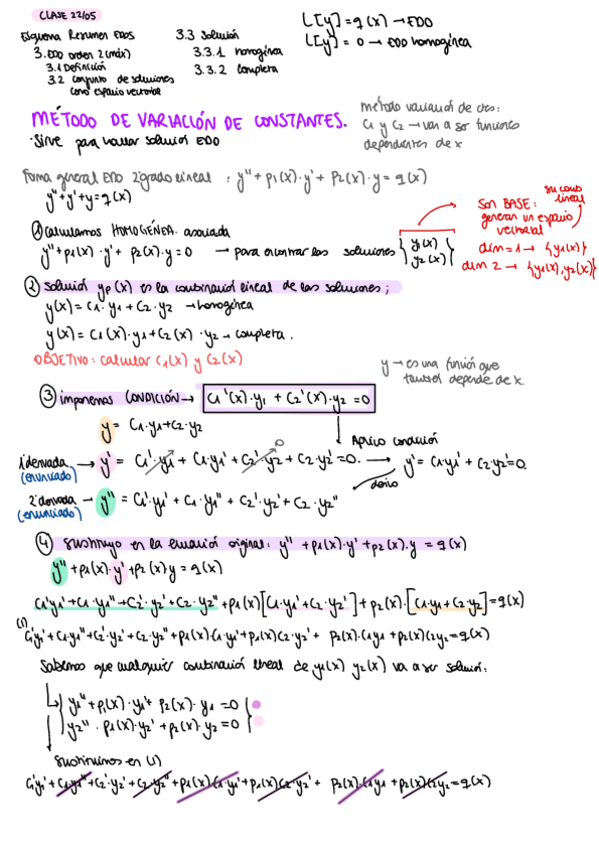 CLASE 22/05
Esquema Resumen EDOS
3. EDO orden 2 (máx)
3.1 Definición
3.2 Conjunto de soluciones
como espacio vectorial
3.3 Solución
3.3.1 homogénea
3.3.2 completa
L[y] = q(x) → EDO
L[y] = 0 → EDO homogénea
MÉTODO DE VARIACIÓN DE CONSTANTES.
método variación de ctes:
C1 y C2 → van a ser funciones
dependientes de x
· Sirve para hallar solución EDO
Forma general EDO 2ºgrado lineal : y'' + p1(x)·y' + p2(x)·y = q(x)
y''+y'+y=q(x)
① calculamos HOMOGÉNEA asociada
y''+p1(x)·y'+ p2(x)·y=0 → para encontrar las soluciones { y1(x) y2(x) }
SON BASE: su comb lineal
generan un espacio
vectorial
dim=1 → {y1(x)}
dim 2 → {y1(x),y2(x)}
② solución yp(x) es la combinación lineal de las soluciones;
y(x) = C1·y1 + C2·y2 → homogénea
y(x) = C1(x)·y1 + C2(x)·y2 → completa.
OBJETIVO: calcular C1(x) y C2(x)
y → es una función que
también depende de x
③ imponemos CONDICIÓN → C1'(x)·y1 + C2'(x)·y2 = 0
y = C1·y1+C2·y2
Aplico condición
1ª derivada (enunciado) → y' = C1'·y1 + C1·y1' + C2'·y2 + C2·y2' = 0. → y' = C1·y1' + C2·y2' = 0.
0
derivo
2ª derivada (enunciado) → y'' = C1'·y1' + C1·y1'' + C2'·y2' + C2·y2''
④ Sustituyo en la ecuación original: y'' + p1(x)·y' + p2(x)·y = q(x)
y'' + p1(x)·y' + p2(x)y = q(x)
C1'y1' + C1·y1'' + C2'·y2' + C2·y2'' + p1(x)[C1·y1' + C2·y2'] + p2(x)·[C1·y1 + C2·y2] = q(x)
(1)
C1'y1' + C1·y1'' + C2'·y2' + C2·y2'' + p1(x)·C1·y1' + p1(x)C2·y2' + p2(x)·C1y1 + p2(x)C2y2 = q(x)
Sabemos que cualquier combinación lineal de y1(x) y2(x) va a ser solución:
y1'' + p1(x)·y1' + p2(x)·y1 = 0
y2'' · p1(x)·y2' + p2(x)·y2 = 0
Sustituimos en (1)
C1'y1' + C1·y1'' + C2'·y2' + C2·y2'' + p1(x)·C1·y1' + p1(x)C2·y2' + p2(x)·C1y1 + p2(x)C2y2 = q(x)